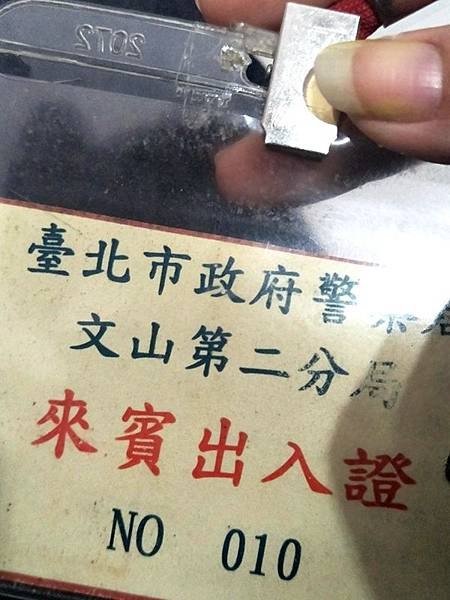 2012
臺北市政府警察局
文山第二分局
來賓出入證
NO 010